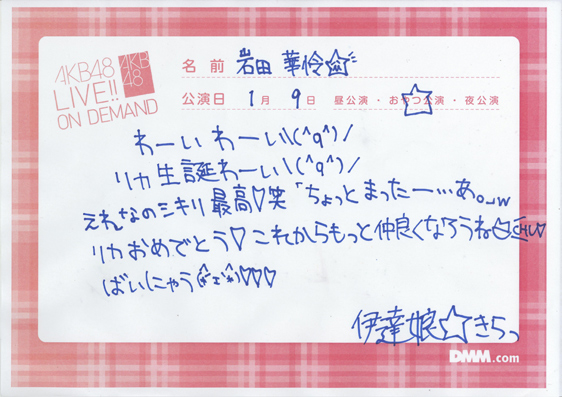 AKB48
LIVE!!
ON DEMAND
AKB
48
名前 岩田 華怜☆
公演日 1月 9日 昼公演・おやつ公演・夜公演
わーいわーい\(^q^)/
リカ生誕わーい\(^q^)/
えれなのシキリ最高♡笑「ちょっとまったー…あ。_w
リカおめでとう♡これからもっと仲良くなろうね CHU♡
ばいにゃう(*^ェ^*)♡♡♡
伊達娘☆きらっ
DMM.com